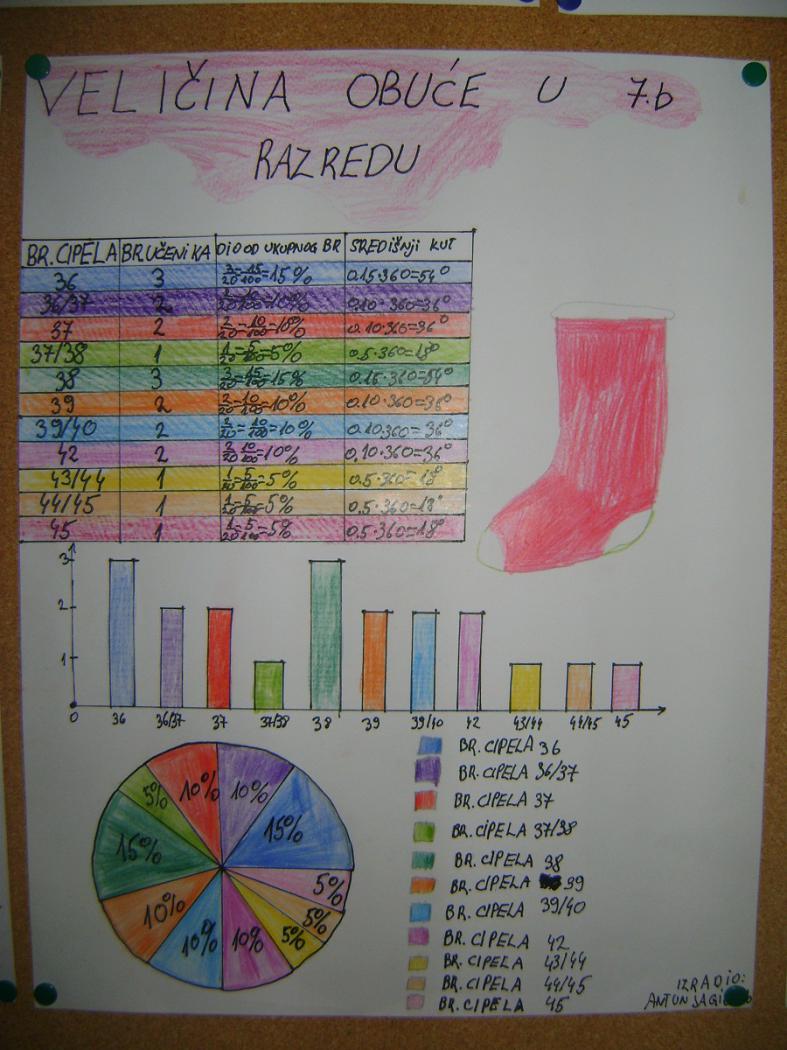 VELIČINA OBUĆE U 7.b
RAZREDU
BR. CIPELA BR.UČENIKA DIO OD UKUPNOG BR SREDIŠNJI KUT
36 3 3/20=15/100=15% 0.15·360=54°
36/37 2 2/20=10/100=10% 0.10·360=36°
37 2 2/20=10/100=10% 0.10·360=36°
37/38 1 1/20=5/100=5% 0.5·360=18°
38 3 3/20=15/100=15% 0.15·360=54°
39 2 2/20=10/100=10% 0.10·360=36°
39/40 2 2/20=10/100=10% 0.10·360=36°
42 2 2/20 10/100=10% 0,10·360=36°
43/44 1 5/100=5% 0.5·360=18°
44/45 1 1/20=5/100=5% 0.5·360=18°
45 1 1/20=5/100=5% 0.5·360=18°
3
2
1
0 36 36/37 37 37/38 38 39 39/40 42 43/44 44/45 45
10% 10%
5% 15%
15% 5%
10% 5%
10% 10% 5%
BR. CIPELA 36
BR. CIPELA 36/37
BR. CIPELA 37
BR. CIPELA 37/38
BR. CIPELA 38
BR. CIPELA 39
BR. CIPELA 39/40
BR. CIPELA 42
BR. CIPELA 43/44
BR. CIPELA 44/45
BR. CIPELA 45
IZRADIO:
ANTUN